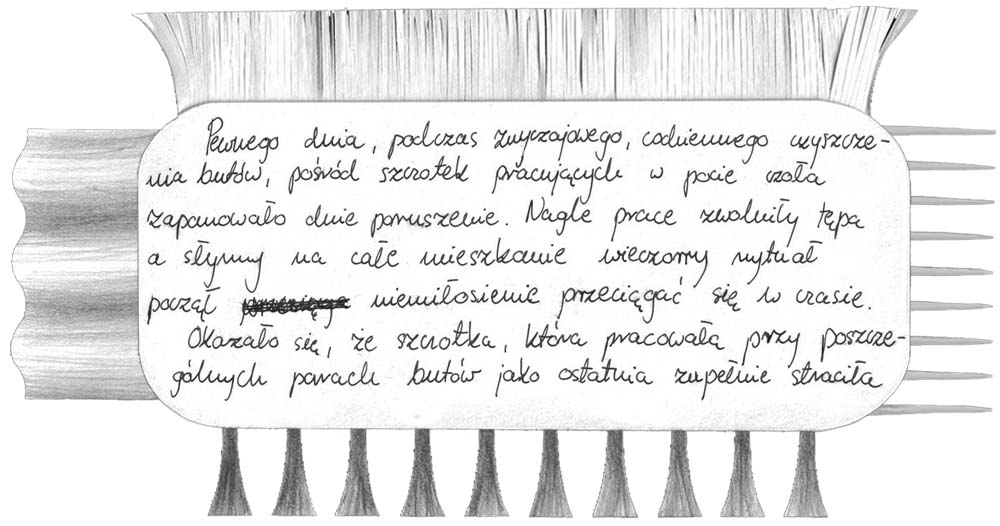 Pewnego dnia, podczas zwyczajowego, codziennego czyszcze-
nia butów, pośród szczotek pracujących w pocie czoła
zapanowało duże poruszenie. Nagle prace zwolniły tępa
a słynny na całe mieszkanie wieczorny rytuał
począł niemiłosienie przeciągać się w czasie.
Okazało się, że szczotka, która pracowała przy poszcze-
gólnych parach butów jako ostatnia zupełnie straciła